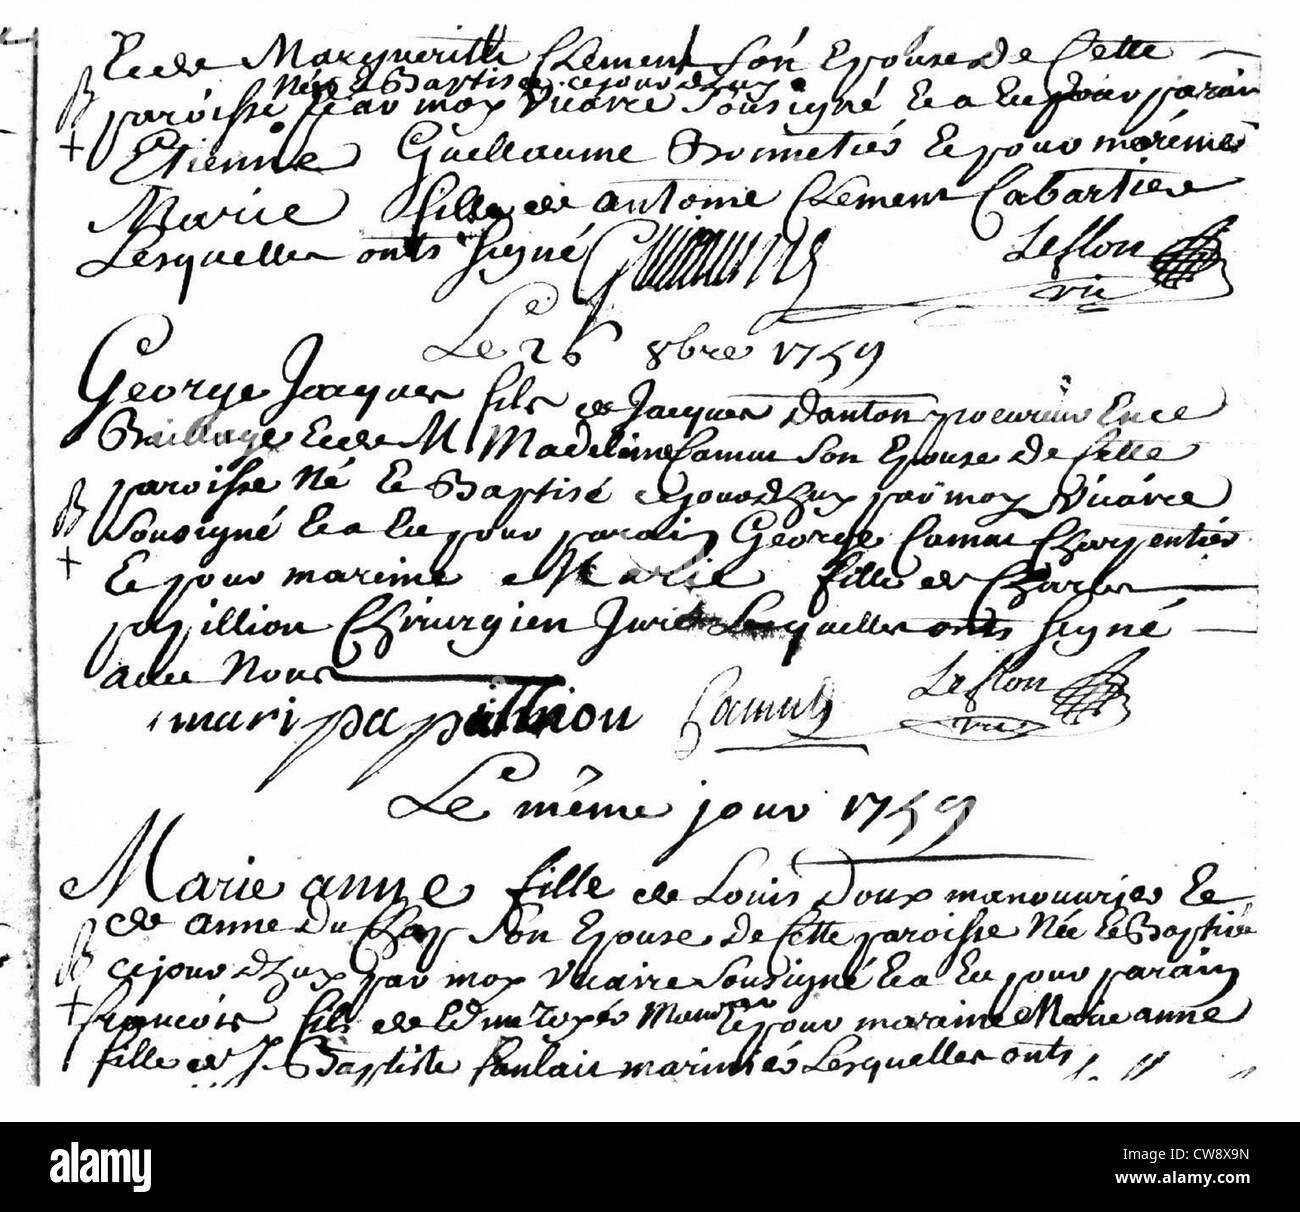 Et de Margueritte Clement son Epouse de Cette
Née et Baptisé cejourdhuy
paroisse par moy Vicaire sousigné Et a Eu pour parain
Etienne Guellaume Bonnetier Et pour maréine
Marie fille de antoine Clement Cabartier
Lesquelles onts signé Leflon
vic
Le 26 8bre 1759
George Jacques fils de Jacques Danton procureur En ce
Baillage Et de M Madeleine Camut son Epouse de Cette
B paroisse Né Et Baptisé cejourdhuy par moy Vicaire
sousigné Et a Eu pour parain George Camut Charpentier
+ Et pour mareine Marie fille de Charles
papillion Chirurgien Juré Lesquelles onts signé
avec Nous
mari papillion Camut Leflon
vic
Le même jour 1759
Marie anne fille de Louis Doux manouvrier Et
de anne Du Chay son Epouse de Cette paroisse Née Et Baptisée
B cejourdhuy par moy Vicaire sousigné Et a Eu pour parain
+ françois fils de Edme Et pour maraine Marie anne
fille de J. Baptiste marinier Lesquelles onts
alamy
Image ID: CW8X9N
www.alamy.com